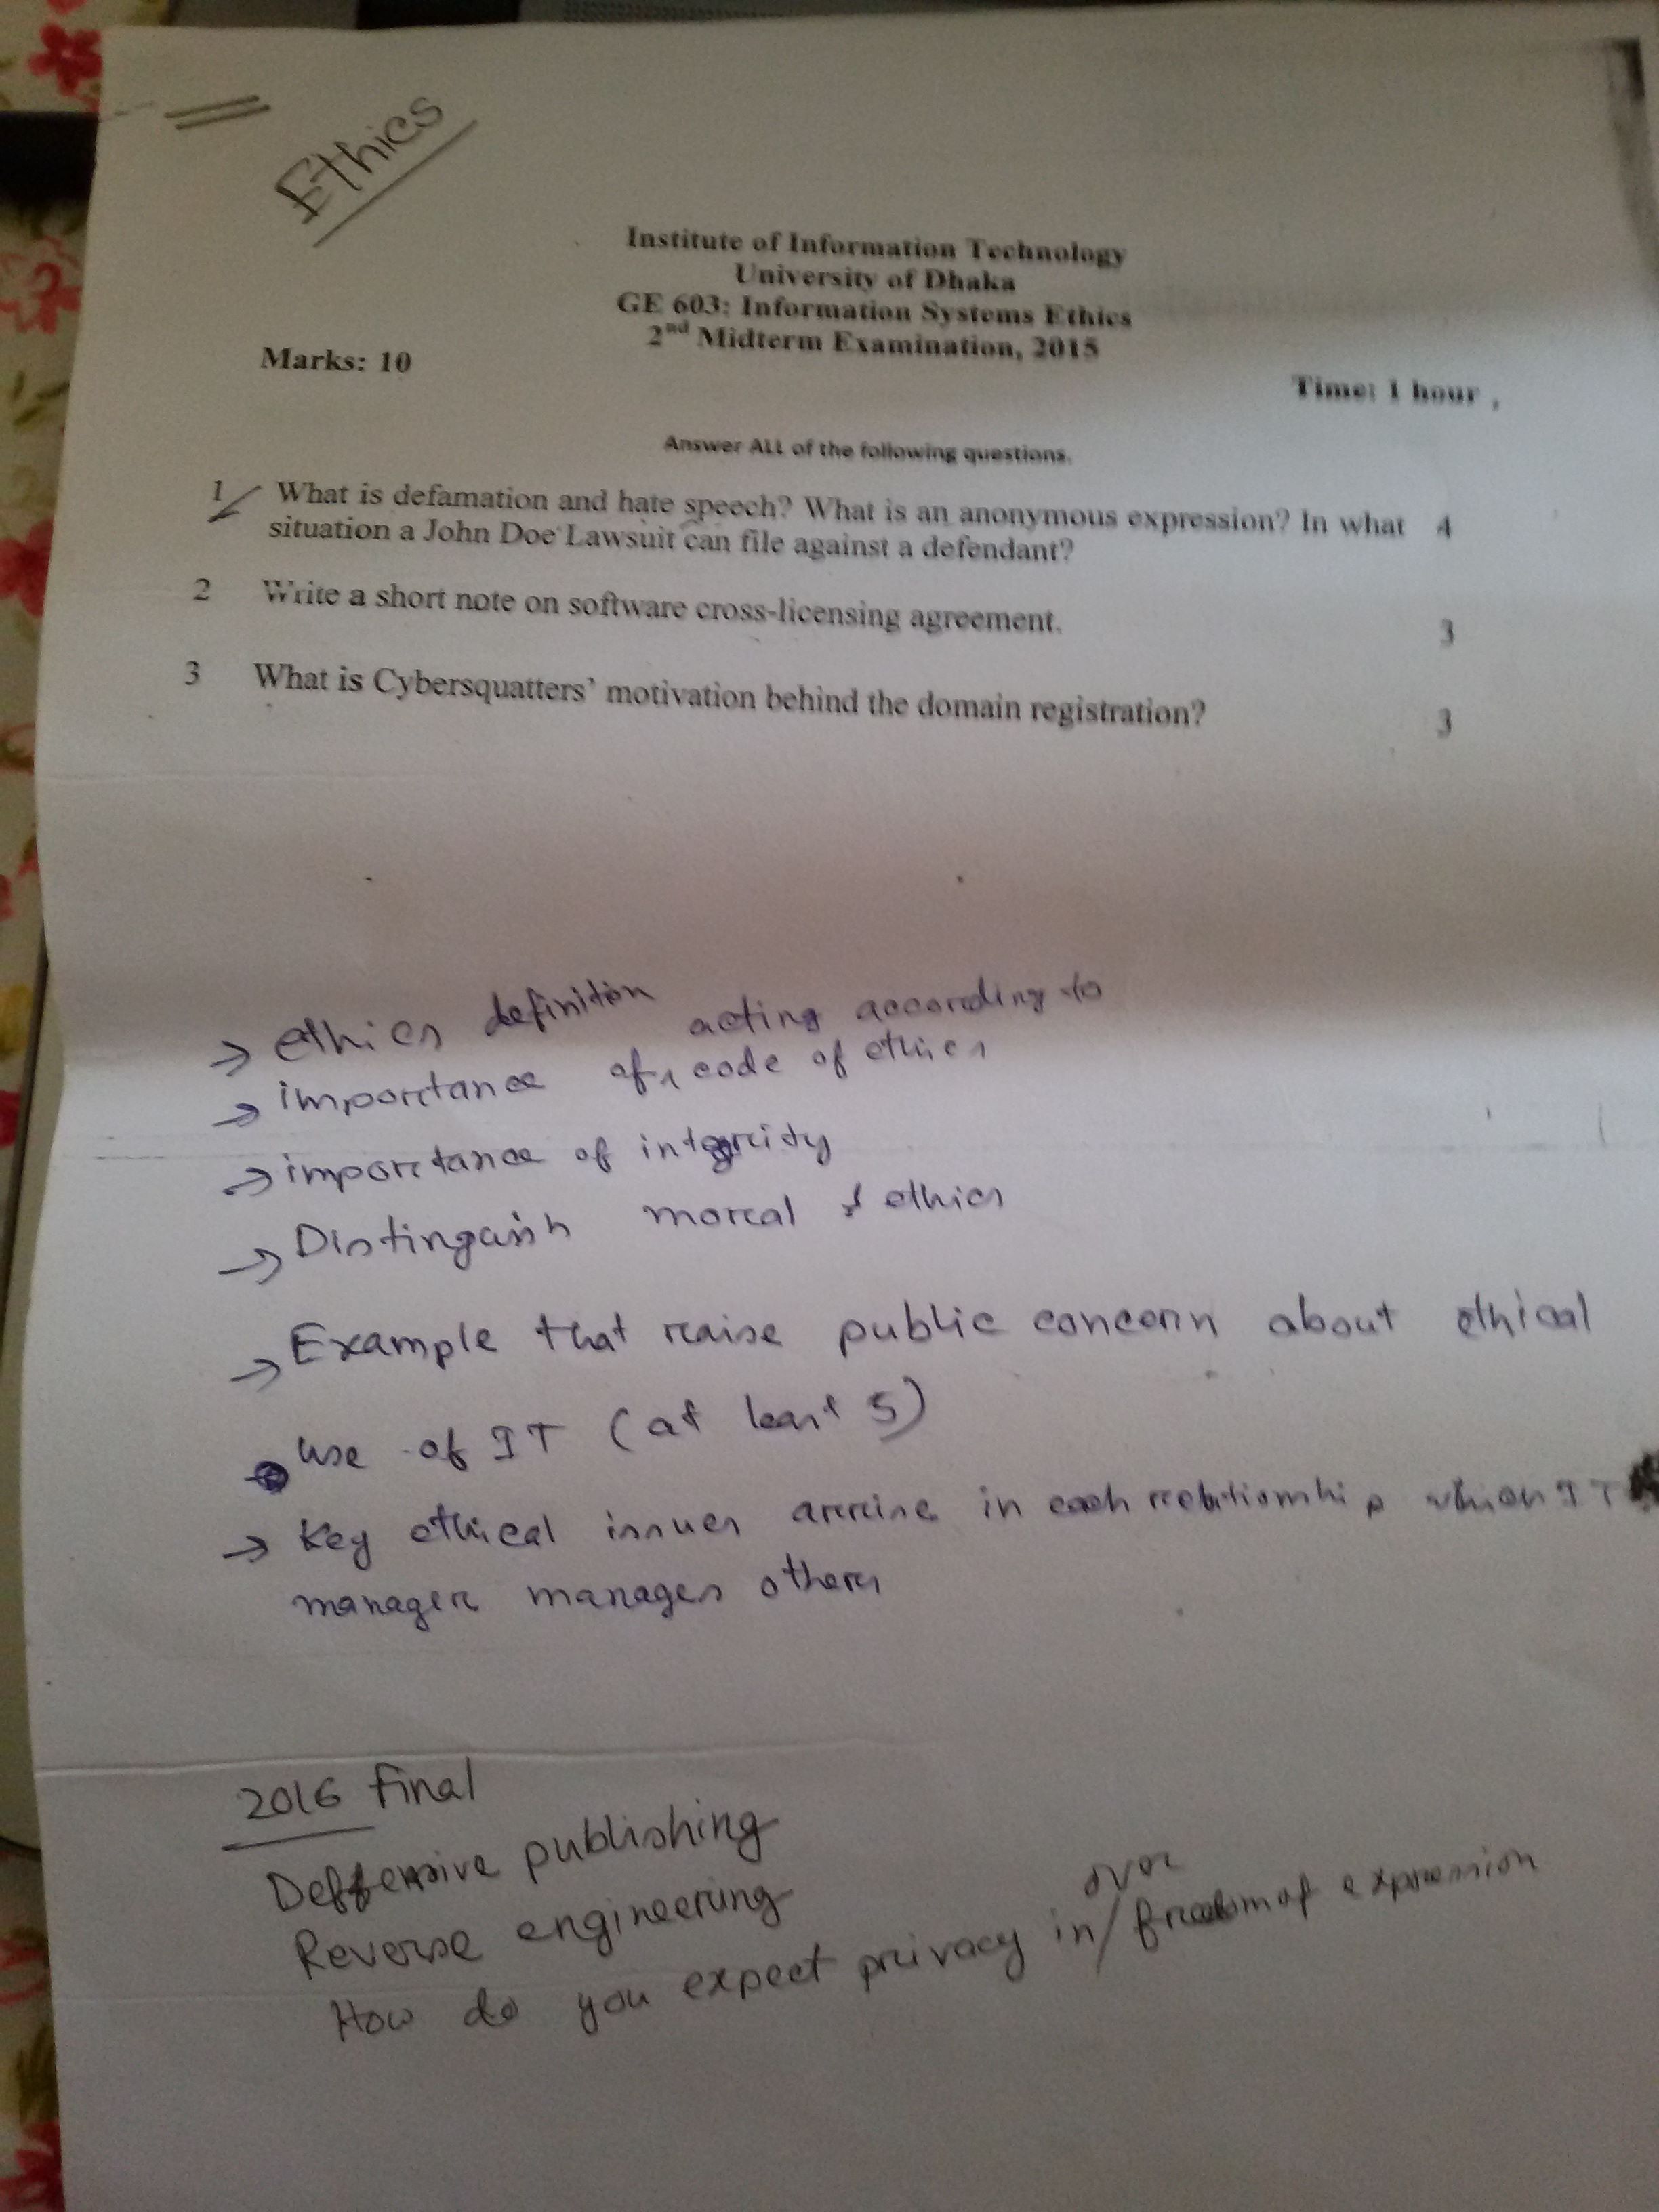 Ethics
Institute of Information Technology
University of Dhaka
GE 603: Information Systems Ethics
2nd Midterm Examination, 2015
Marks: 10
Time: 1 hour
Answer ALL of the following questions.
1 What is defamation and hate speech? What is an anonymous expression? In what 4
situation a John Doe Lawsuit can file against a defendant?
2 Write a short note on software cross-licensing agreement. 3
3 What is Cybersquatters' motivation behind the domain registration? 3
→ ethics definition
→ importance of acting according to code of ethics
→ importance of integrity
→ Distinguish moral & ethics
→ Example that raise public concern about ethical
use of IT (at least 5)
→ Key ethical issues arrise in each relationship when IT
manager manages others
2016 final
Deffensive publishing
Reverse engineering
How do you expect privacy in/over freedom of expression